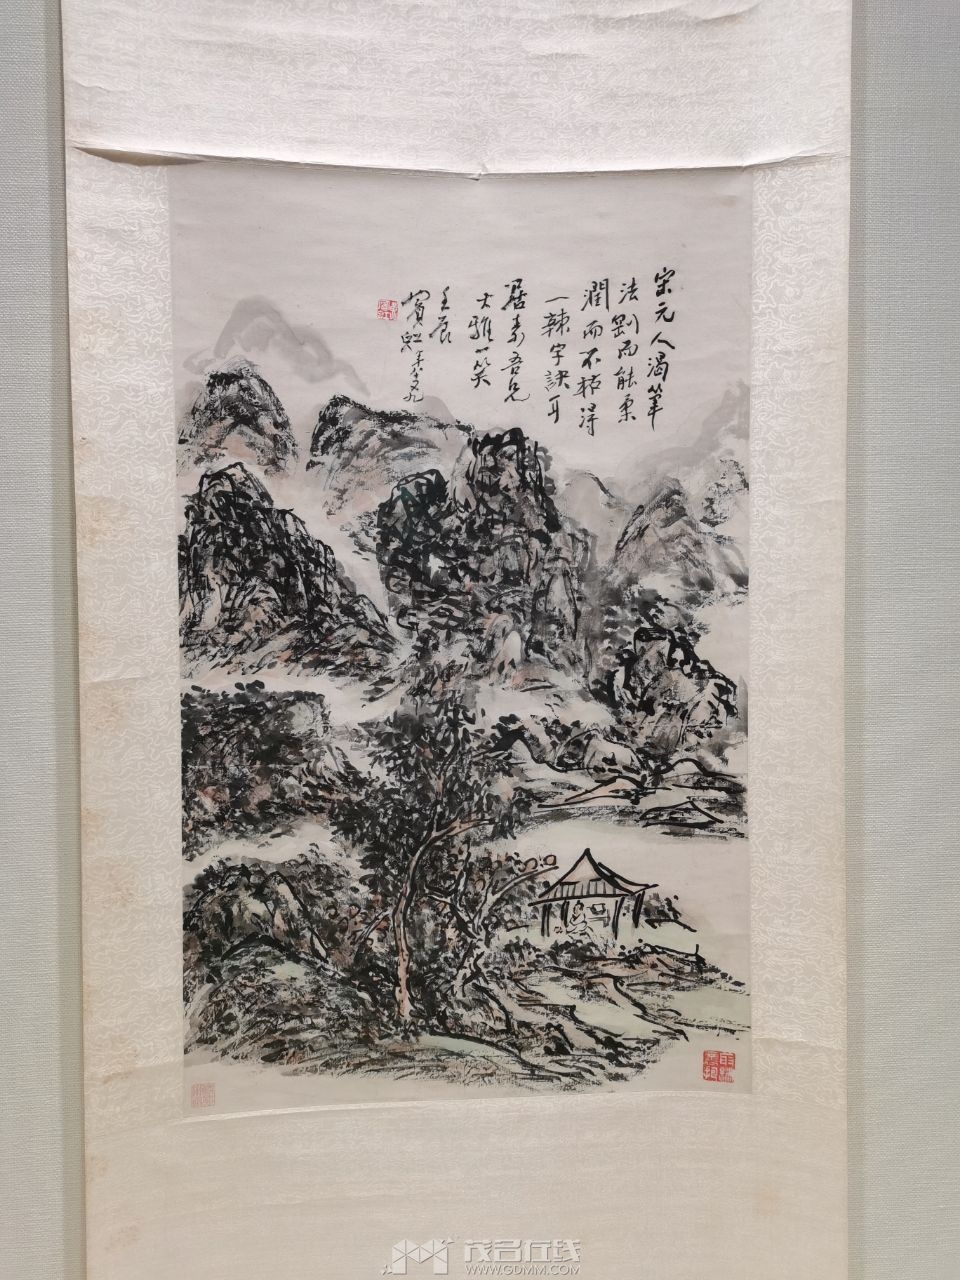 宋元人渴筆
法劉而能柔
潤而不枯得
一辣字訣耳
居素吾兄
大雅一笑
壬辰
賓虹年八十九
茂名在线
WWW.GDMM.COM